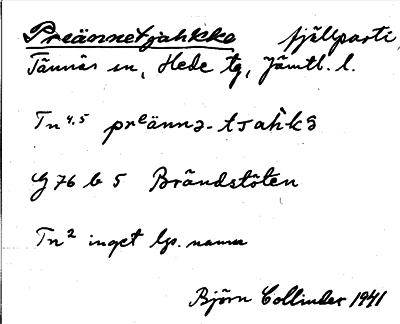 Preännetjahkke fjällparti
Tännäs sn, Hede tg, Jämtl. l.
Tn 4.5 preännə-tsàhkə
G 76 b 5 Brändstöten
Tn 2 inget lp. namn
Björn Collinder 1941